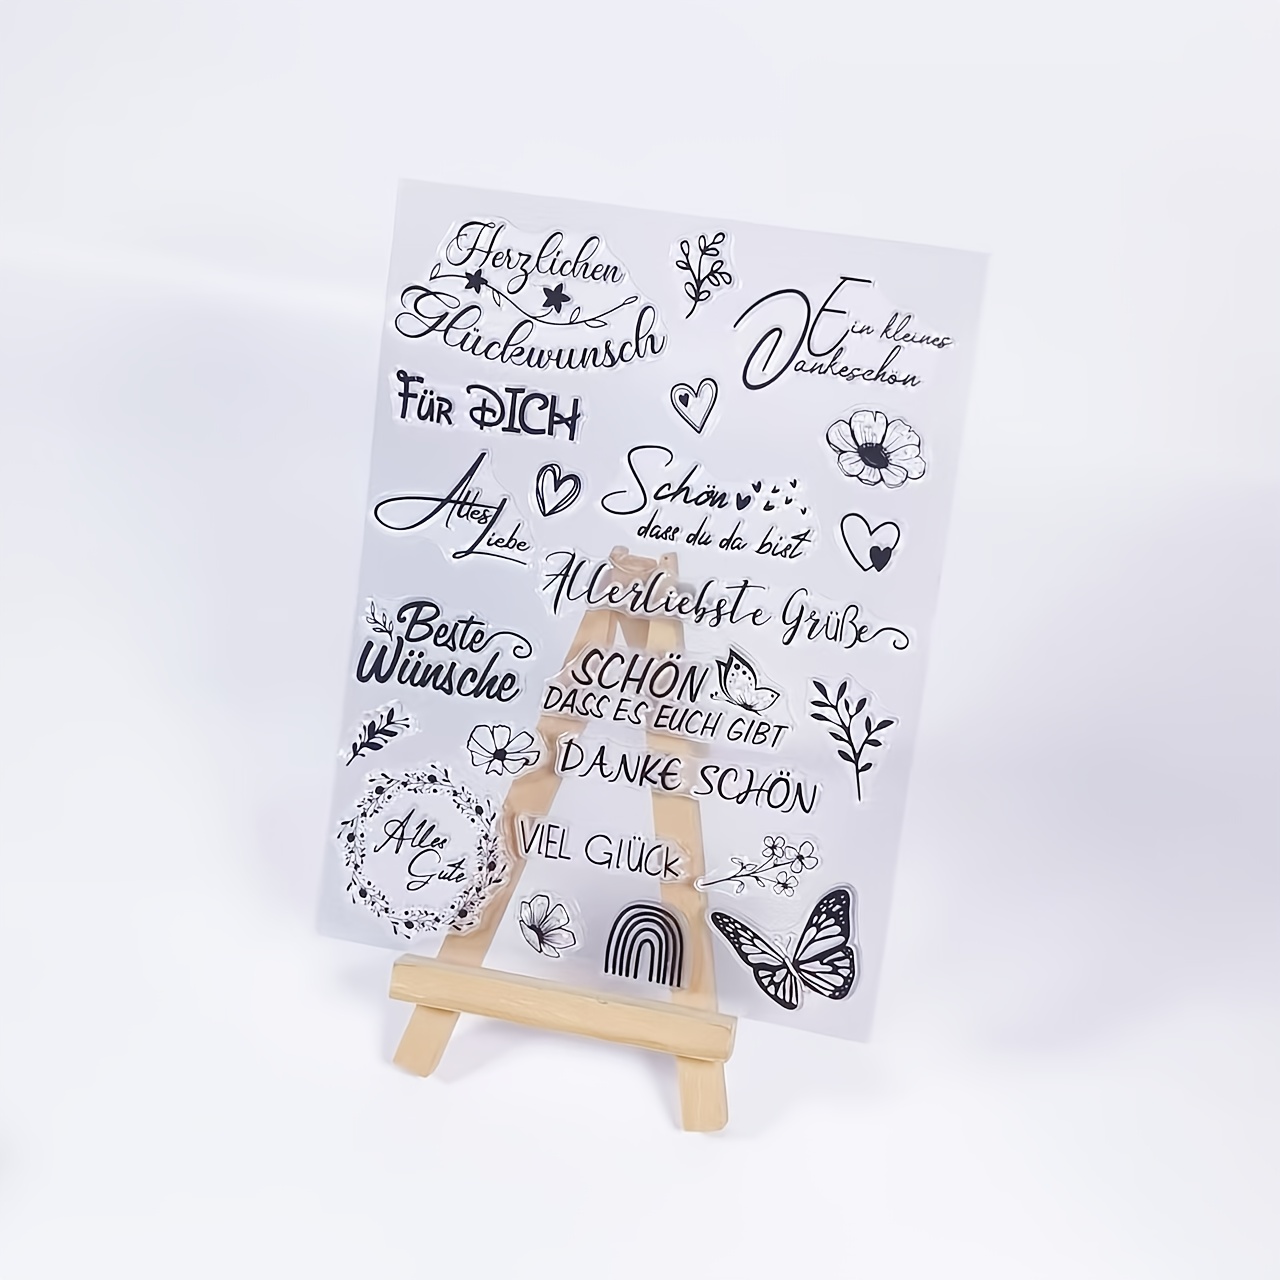 Herzlichen
Glückwunsch
Ein kleines
Dankeschön
FÜR DICH
Alles
Liebe
Schön
dass du da bist
Allerliebste Grüße
Beste
Wünsche
SCHÖN
DASS ES EUCH GIBT
DANKE SCHÖN
Alles
Gute
VIEL GlÜCK